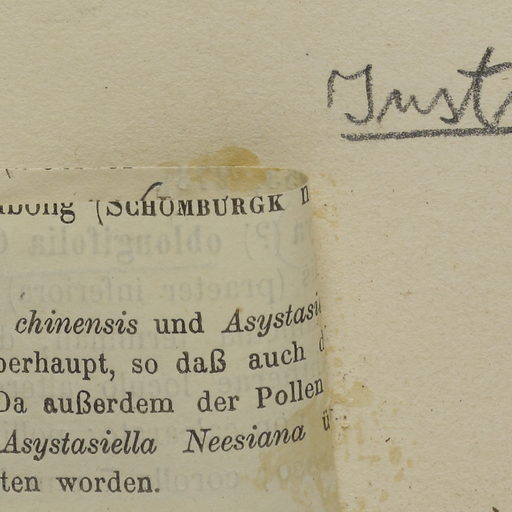 Just
(SCHOMBURGK
chinensis und Asystasi
berhaupt, so daß auch d
Da außerdem der Pollen
Asystasiella Neesiana ü
ten worden.